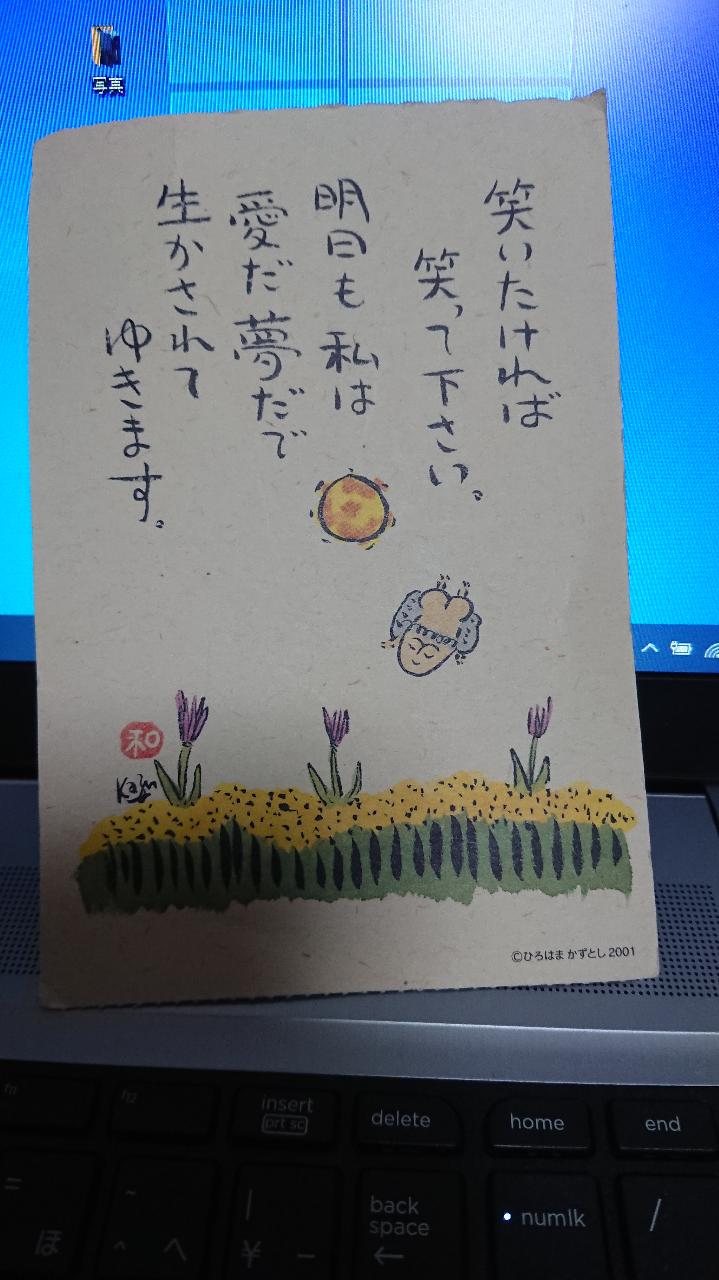 写真
笑いたければ
笑って下さい。
明日も私は
愛だ夢だで
生かされて
ゆきます。
和
©ひろはま かずとし 2001
f11
f12
insert
prt sc
delete
home
end
=
ほ
~
^
へ
|
¥
ー
back
space
←
numlk
/